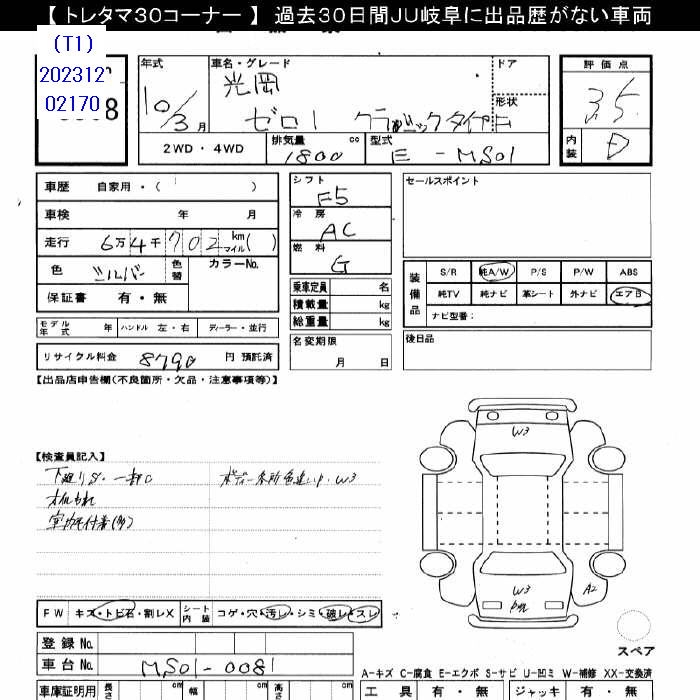 【 トレタマ30コーナー 】 過去30日間JU岐阜に出品歴がない車両
(T1)
202312
02170
8
年式 車名・グレード ドア 評価点
光岡
10/3月 ゼロ1 クラシックタイプF 形状 3.5
2WD・4WD 排気量 1800 cc 型式 E-MS01 内装 D
車歴 自家用・( ) シフト F5 セールスポイント
車検 年 月 冷房 AC
走行 6万4千702 km マイル ( ) 燃料 G
色 シルバー 色替 カラーNo. 装備品 S/R 純A/W P/S P/W ABS
保証書 有・無 乗車定員 名 純TV 純ナビ 革シート 外ナビ エアB
積載量 kg ナビ型番:
モデル年式 年 ハンドル 左・右 ディーラー・並行 総重量 kg
リサイクル料金 8790 円 預託済 名変期限 月 日 後日品
【出品店申告欄(不良箇所・欠品・注意事項等)】
【検査員記入】
下廻りS・一部C ボディー各所色違いP・W3
オイルもれ
W3
W3
A2
FW キズ・トビ石・割レX シート内装 コゲ・穴・汚レ・シミ・破レ・スレ
登録 No.
スペア
車台 No. MS01-0081
A-キズ C-腐食 E-エクボ S-サビ U-凹ミ W-補修 XX-交換済
車庫証明用 長さ cm 幅 cm 高さ cm 工具 有・無 ジャッキ 有・無